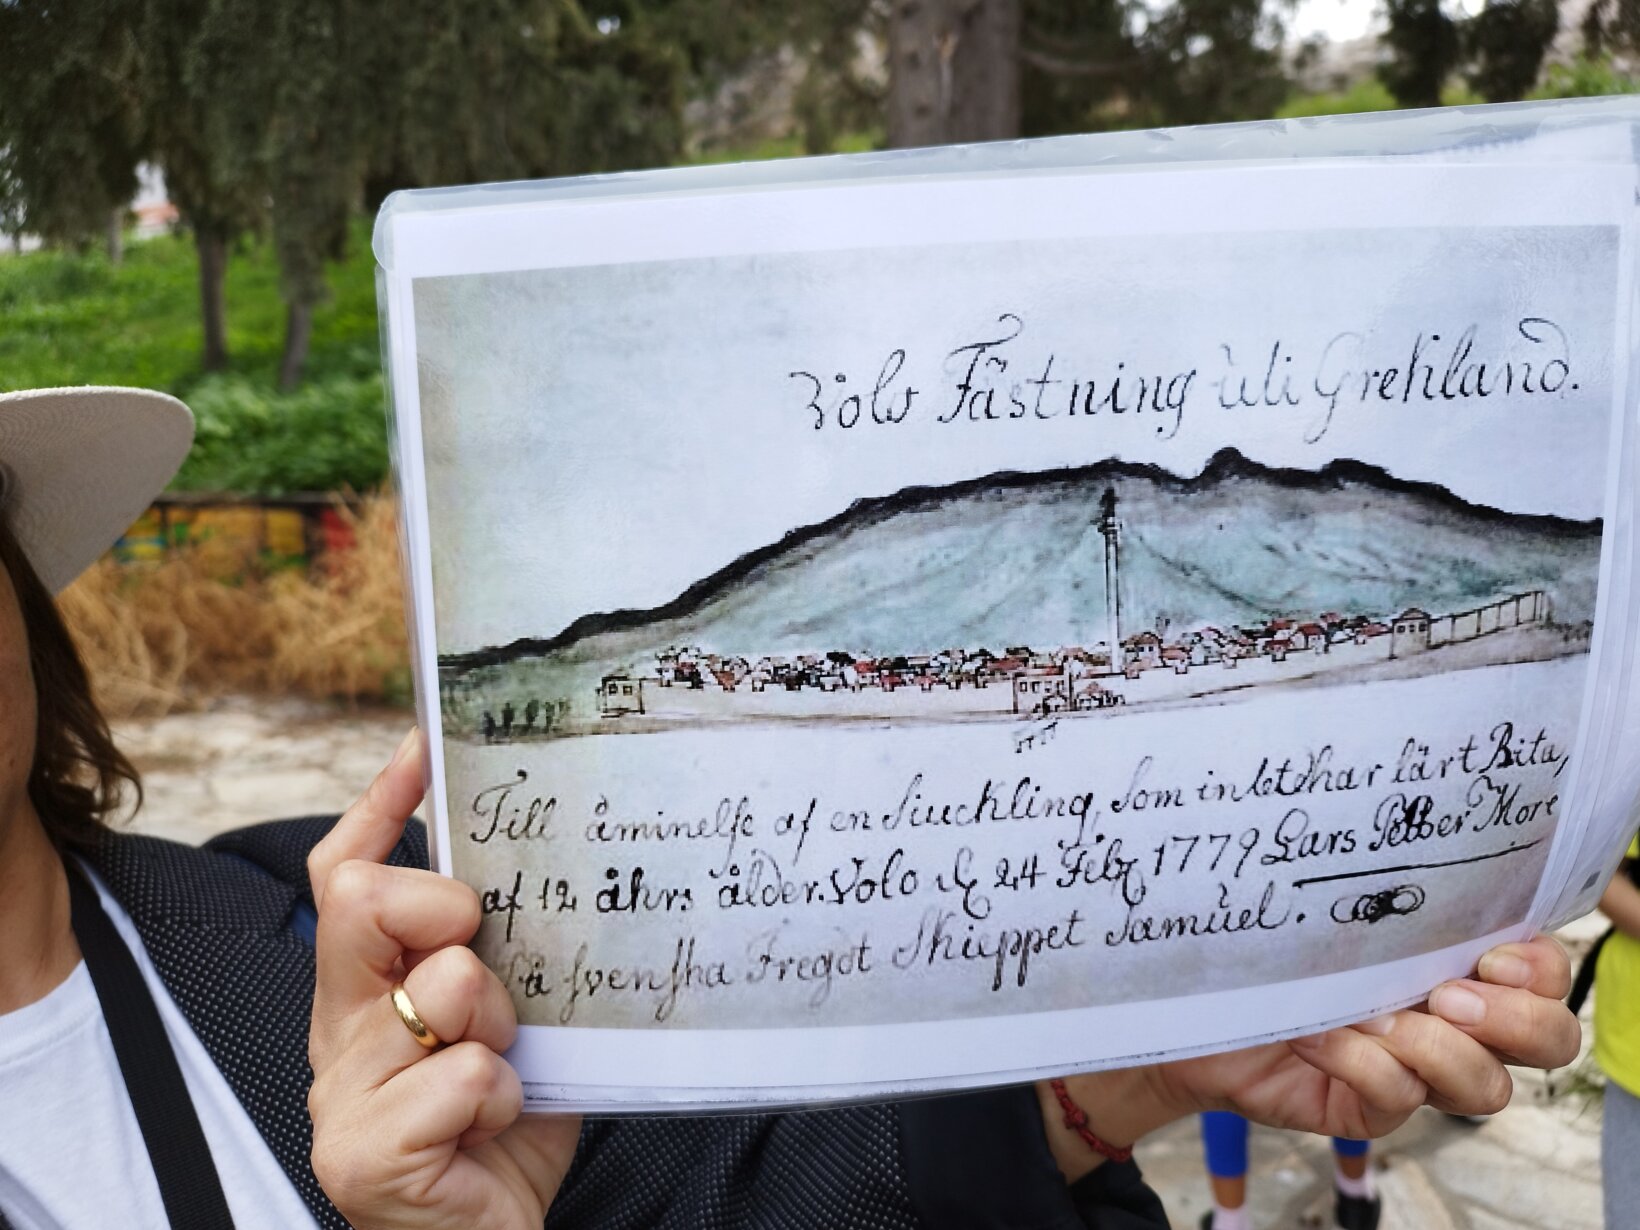 Volo Fästning uti Grekland.
Till åminelse af en Siuckling, som intet har lärt Rita,
af 12 åhrs ålder. Volo d. 24 Febr 1779 Lars Petter More
På svenska Fregat Skieppet Samuel.